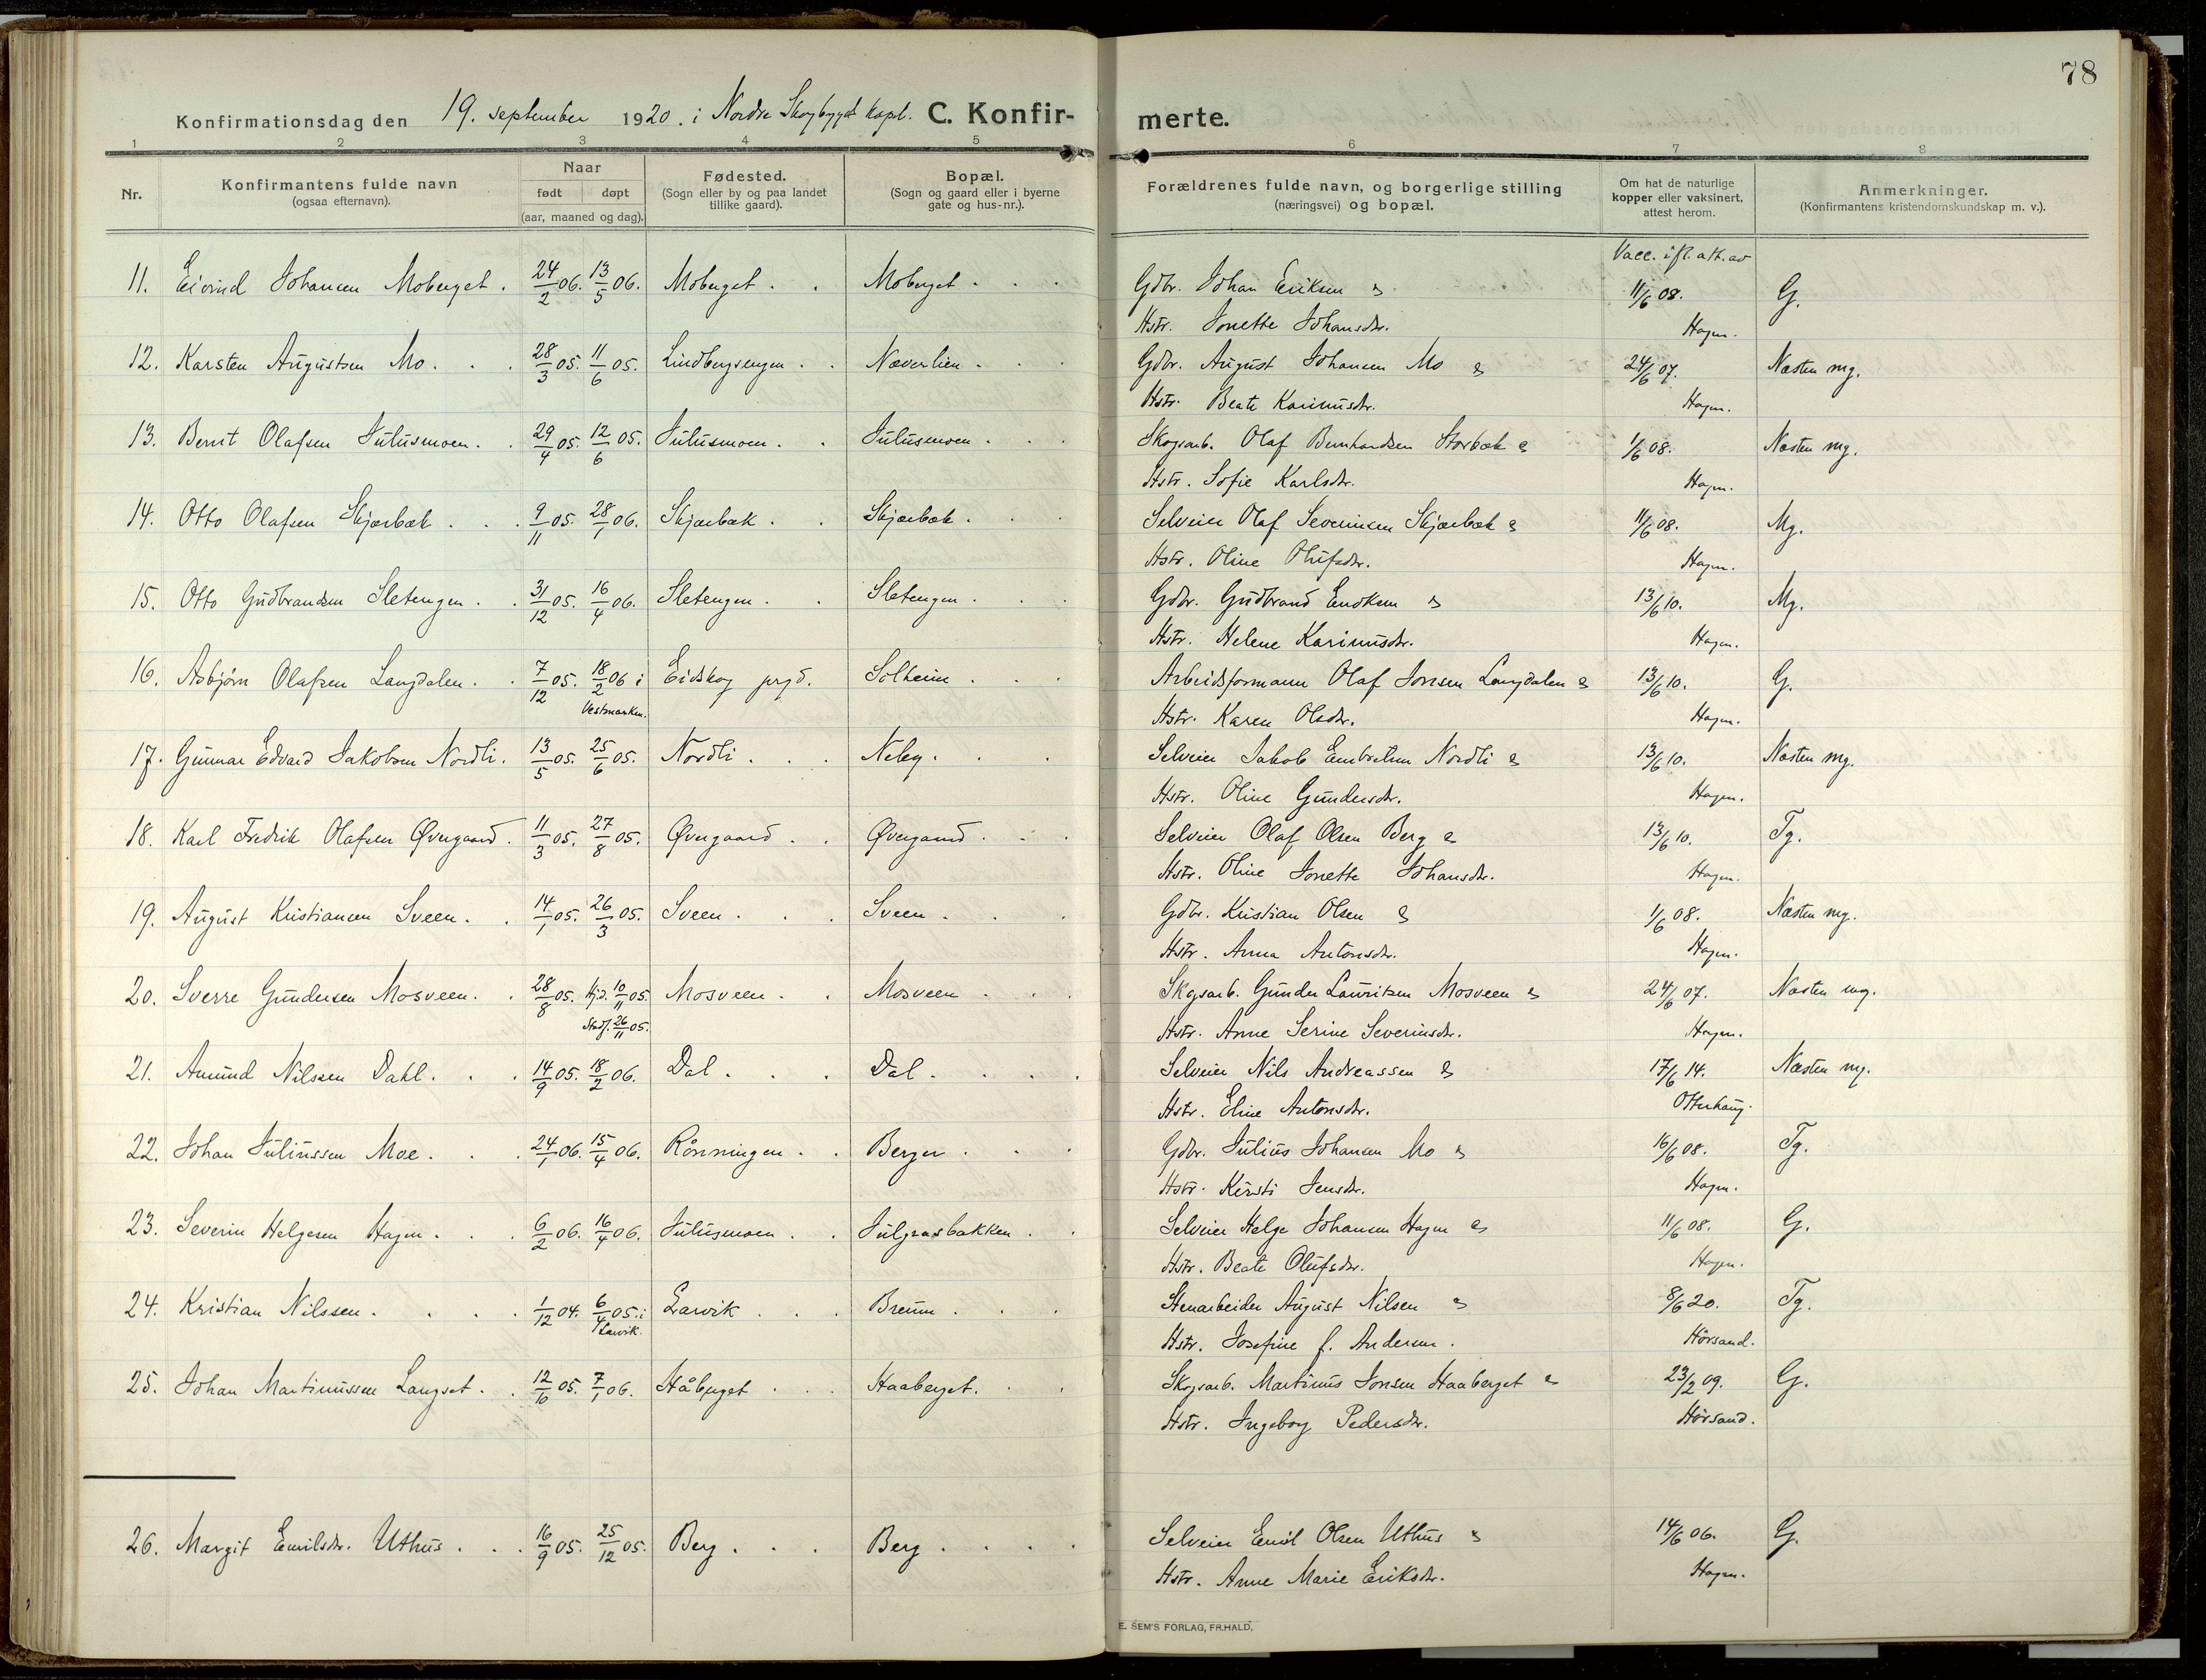 78
Konfirmationsdag den 19. september 1920. i Nordre Skogbygd kapel. C. Konfirmerte.
1 2 3 4 5 6 7 8
Nr. Konfirmantens fulde navn (ogsaa efternavn). Naar født døpt (aar, maaned og dag). Fødested. (Sogn eller by og paa landet tillike gaard). Bopæl. (Sogn og gaard eller i byerne gate og hus-nr.). Forældrenes fulde navn, og borgerlige stilling (næringsvei) og bopæl. Om hat de naturlige kopper eller vaksinert, attest herom. Anmerkninger. (Konfirmantens kristendomskundskap m. v.).
Vacc. ifl. att. av
11. Eivind Johansen Moberget. 24/2 06. 13/5 06. Moberget. Moberget. Gdbr. Johan Eriksen & 11/6 08. G.
Hstr. Jonette Johansdr. Hagen.
12. Karsten Augustsen Mo. 28/3 05. 11/6 05. Lindbergsengen. Næverlien. Gdbr. August Johansen Mo & 24/6 07. Næsten mg.
Hstr. Beate Karinusdr. Hagen.
13. Bernt Olafsen Julusmoen. 29/4 05. 12/6 05. Julusmoen. Julusmoen. Skogsarb. Olaf Bernhardsen Storbæk & 1/6 08. Næsten mg.
Hstr. Sofie Karlsdr. Hagen.
14. Otto Olafsen Skjærbæk. 9/11 05. 28/1 06. Skjærbæk. Skjærbæk. Selveier Olaf Severinsen Skjærbæk & 11/6 08. Mg.
Hstr. Oline Olufsdr. Hagen.
15. Otto Gudbrandsen Sletengen. 31/12 05. 16/4 06. Sletengen. Sletengen. Gdbr. Gudbrand Enoksen & 13/6 10. Mg.
Hstr. Helene Karinusdr. Hagen.
16. Asbjørn Olafsen Langdalen. 7/12 05. 18/2 06 i Vestmarken. Eidskog prgd. Solheim. Arbeidsformann Olaf Jonsen Langdalen & 13/6 10. G.
Hstr. Karen Olsdr. Hagen.
17. Gunnar Edvard Jakobsen Nordli. 13/5 05. 25/6 05. Nordli. Neby. Selveier Jakob Embretsen Nordli & 13/6 10. Næsten mg.
Hstr. Oline Gundersdr. Hagen.
18. Karl Fredrik Olafsen Øvergaard. 11/3 05. 27/8 05. Øvergaard. Øvergaard. Selveier Olaf Olsen Berg & 13/6 10. Tg.
Hstr. Oline Jonette Johansdr. Hagen.
19. August Kristiansen Sveen. 14/1 05. 26/3 05. Sveen. Sveen. Gdbr. Kristian Olsen & 1/6 08. Næsten mg.
Hstr. Anna Antonsdr. Hagen.
20. Sverre Gundersen Mosveen. 28/8 05. Hjd. 10/11 05. Stadf. 26/11 05. Mosveen. Mosveen. Skogsarb. Gunder Lauritsen Mosveen & 24/6 07. Næsten mg.
Hstr. Anne Serine Severinsdr. Hagen.
21. Amund Nilssen Dahl. 14/9 05. 18/2 06. Dal. Dal. Selveier Nils Andreassen & 17/6 14. Næsten mg.
Hstr. Eline Antonsdr. Otterhaug.
22. Johan Juliussen Moe. 24/1 06. 15/4 06. Rønningen. Berger. Gdbr. Julius Johansen Mo & 16/6 08. Tg.
Hstr. Kirsti Jensdr. Hagen.
23. Severin Helgesen Hagen. 6/2 06. 16/4 06. Julusmoen. Julgrasbakken. Selveier Helge Johansen Hagen & 11/6 08. G.
Hstr. Beate Olufsdr. Hagen.
24. Kristian Nilssen. 1/12 04. 6/4 05. i Larvik. Larvik. Breum. Stenarbeider August Nilsen & 8/6 20. Tg.
Hstr. Josefine f. Andersen. Hörsand.
25. Johan Martinussen Langset. 12/10 05. 7/1 06. Håberget. Haaberget. Skogsarb. Martinus Jonsen Haaberget & 23/2 09. G.
Hstr. Ingeborg Pedersdr. Hörsand.
26. Margit Emilsdr. Uthus. 16/9 05. 25/12 05. Berg. Berg. Selveier Emil Olsen Uthus & 14/6 06. G.
Hstr. Anne Marie Eriksdr. Hagen.
E. SEM'S FORLAG, FR.HALD.